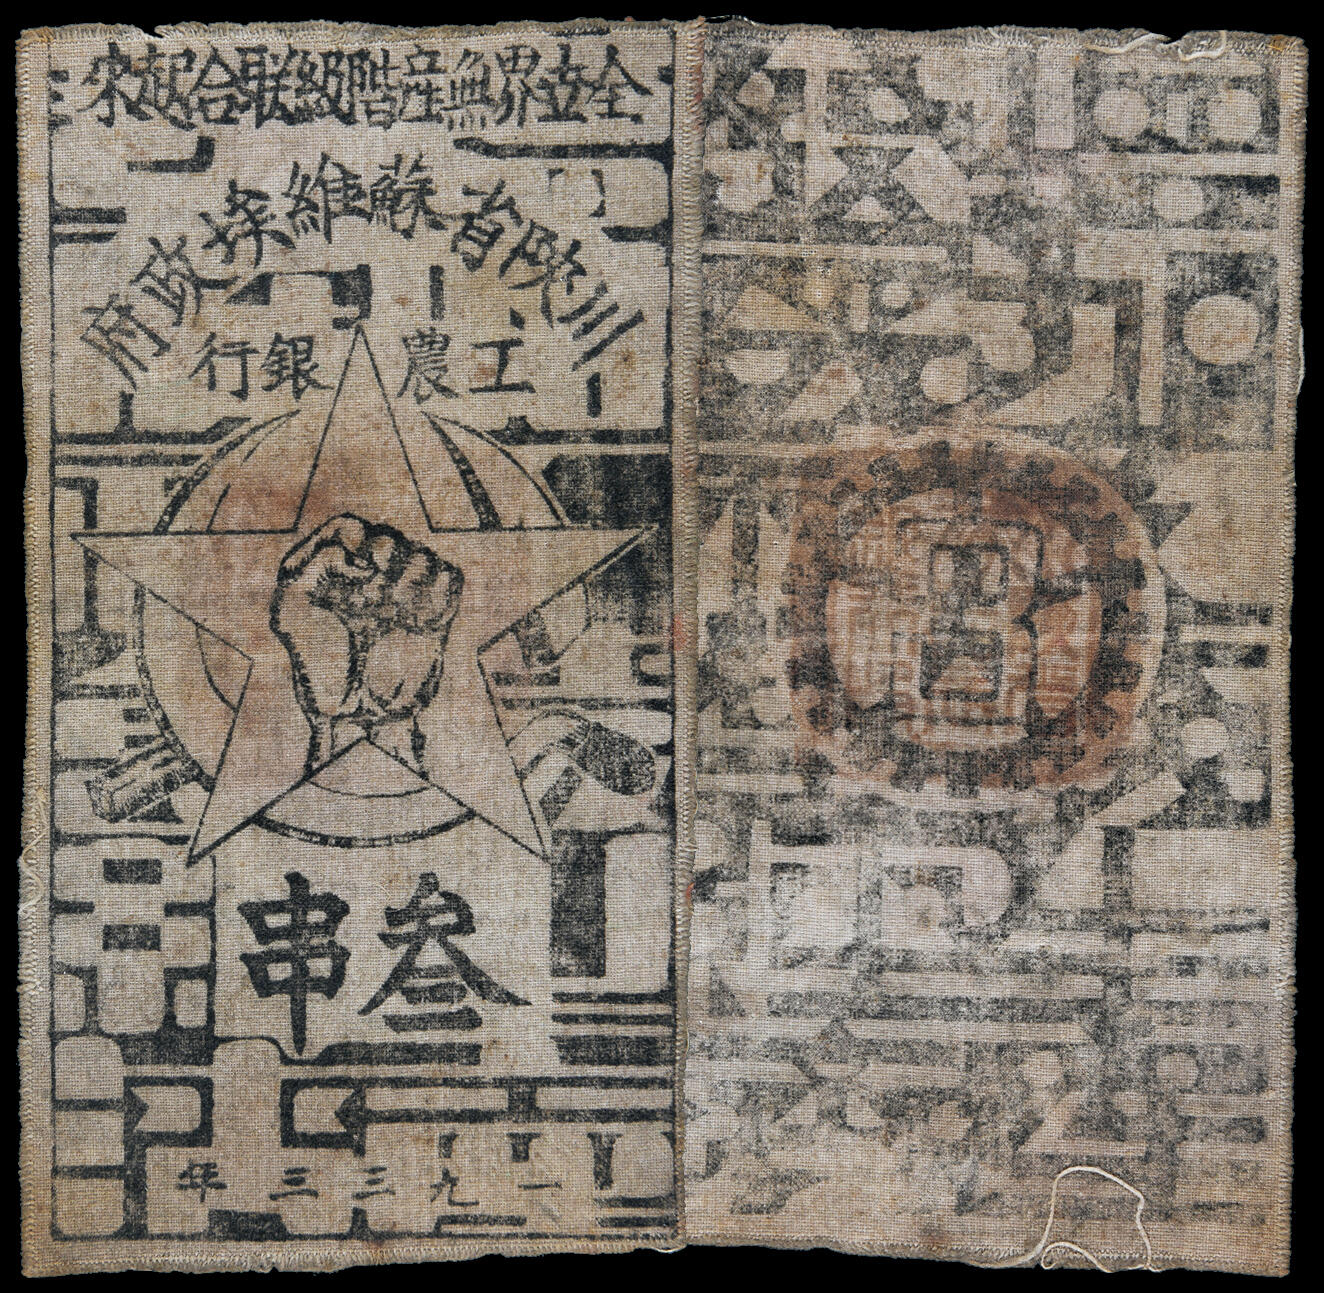 全世界無産階級联合起来
川陝省蘇維埃政府
工農銀行
叁串
一九三三年